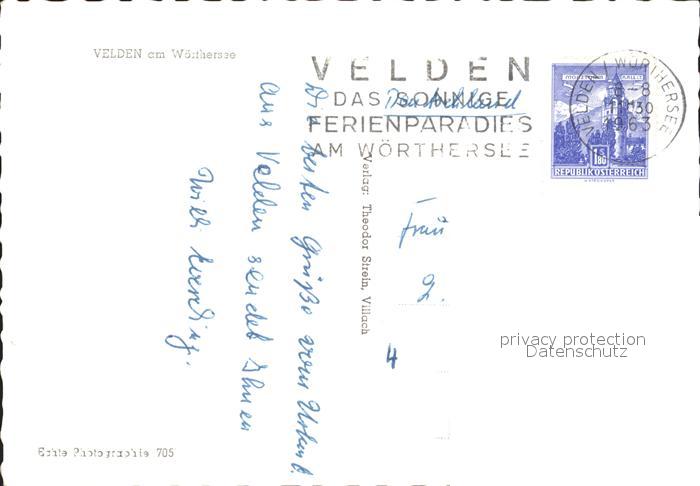 VELDEN am Wörthersee
VELDEN
DAS SONNIGE
FERIENPARADIES
AM WÖRTHERSEE
VELDEN / WÖRTHERSEE
-8
1963
1.80
REPUBLIK ÖSTERREICH
Deutschland
Die besten Grüße vom Urlaub
aus Velden sendet Ihnen
Willi
Verlag: Theodor Strein, Villach
Frau
4
privacy protection
Datenschutz
Echte Photographie 705